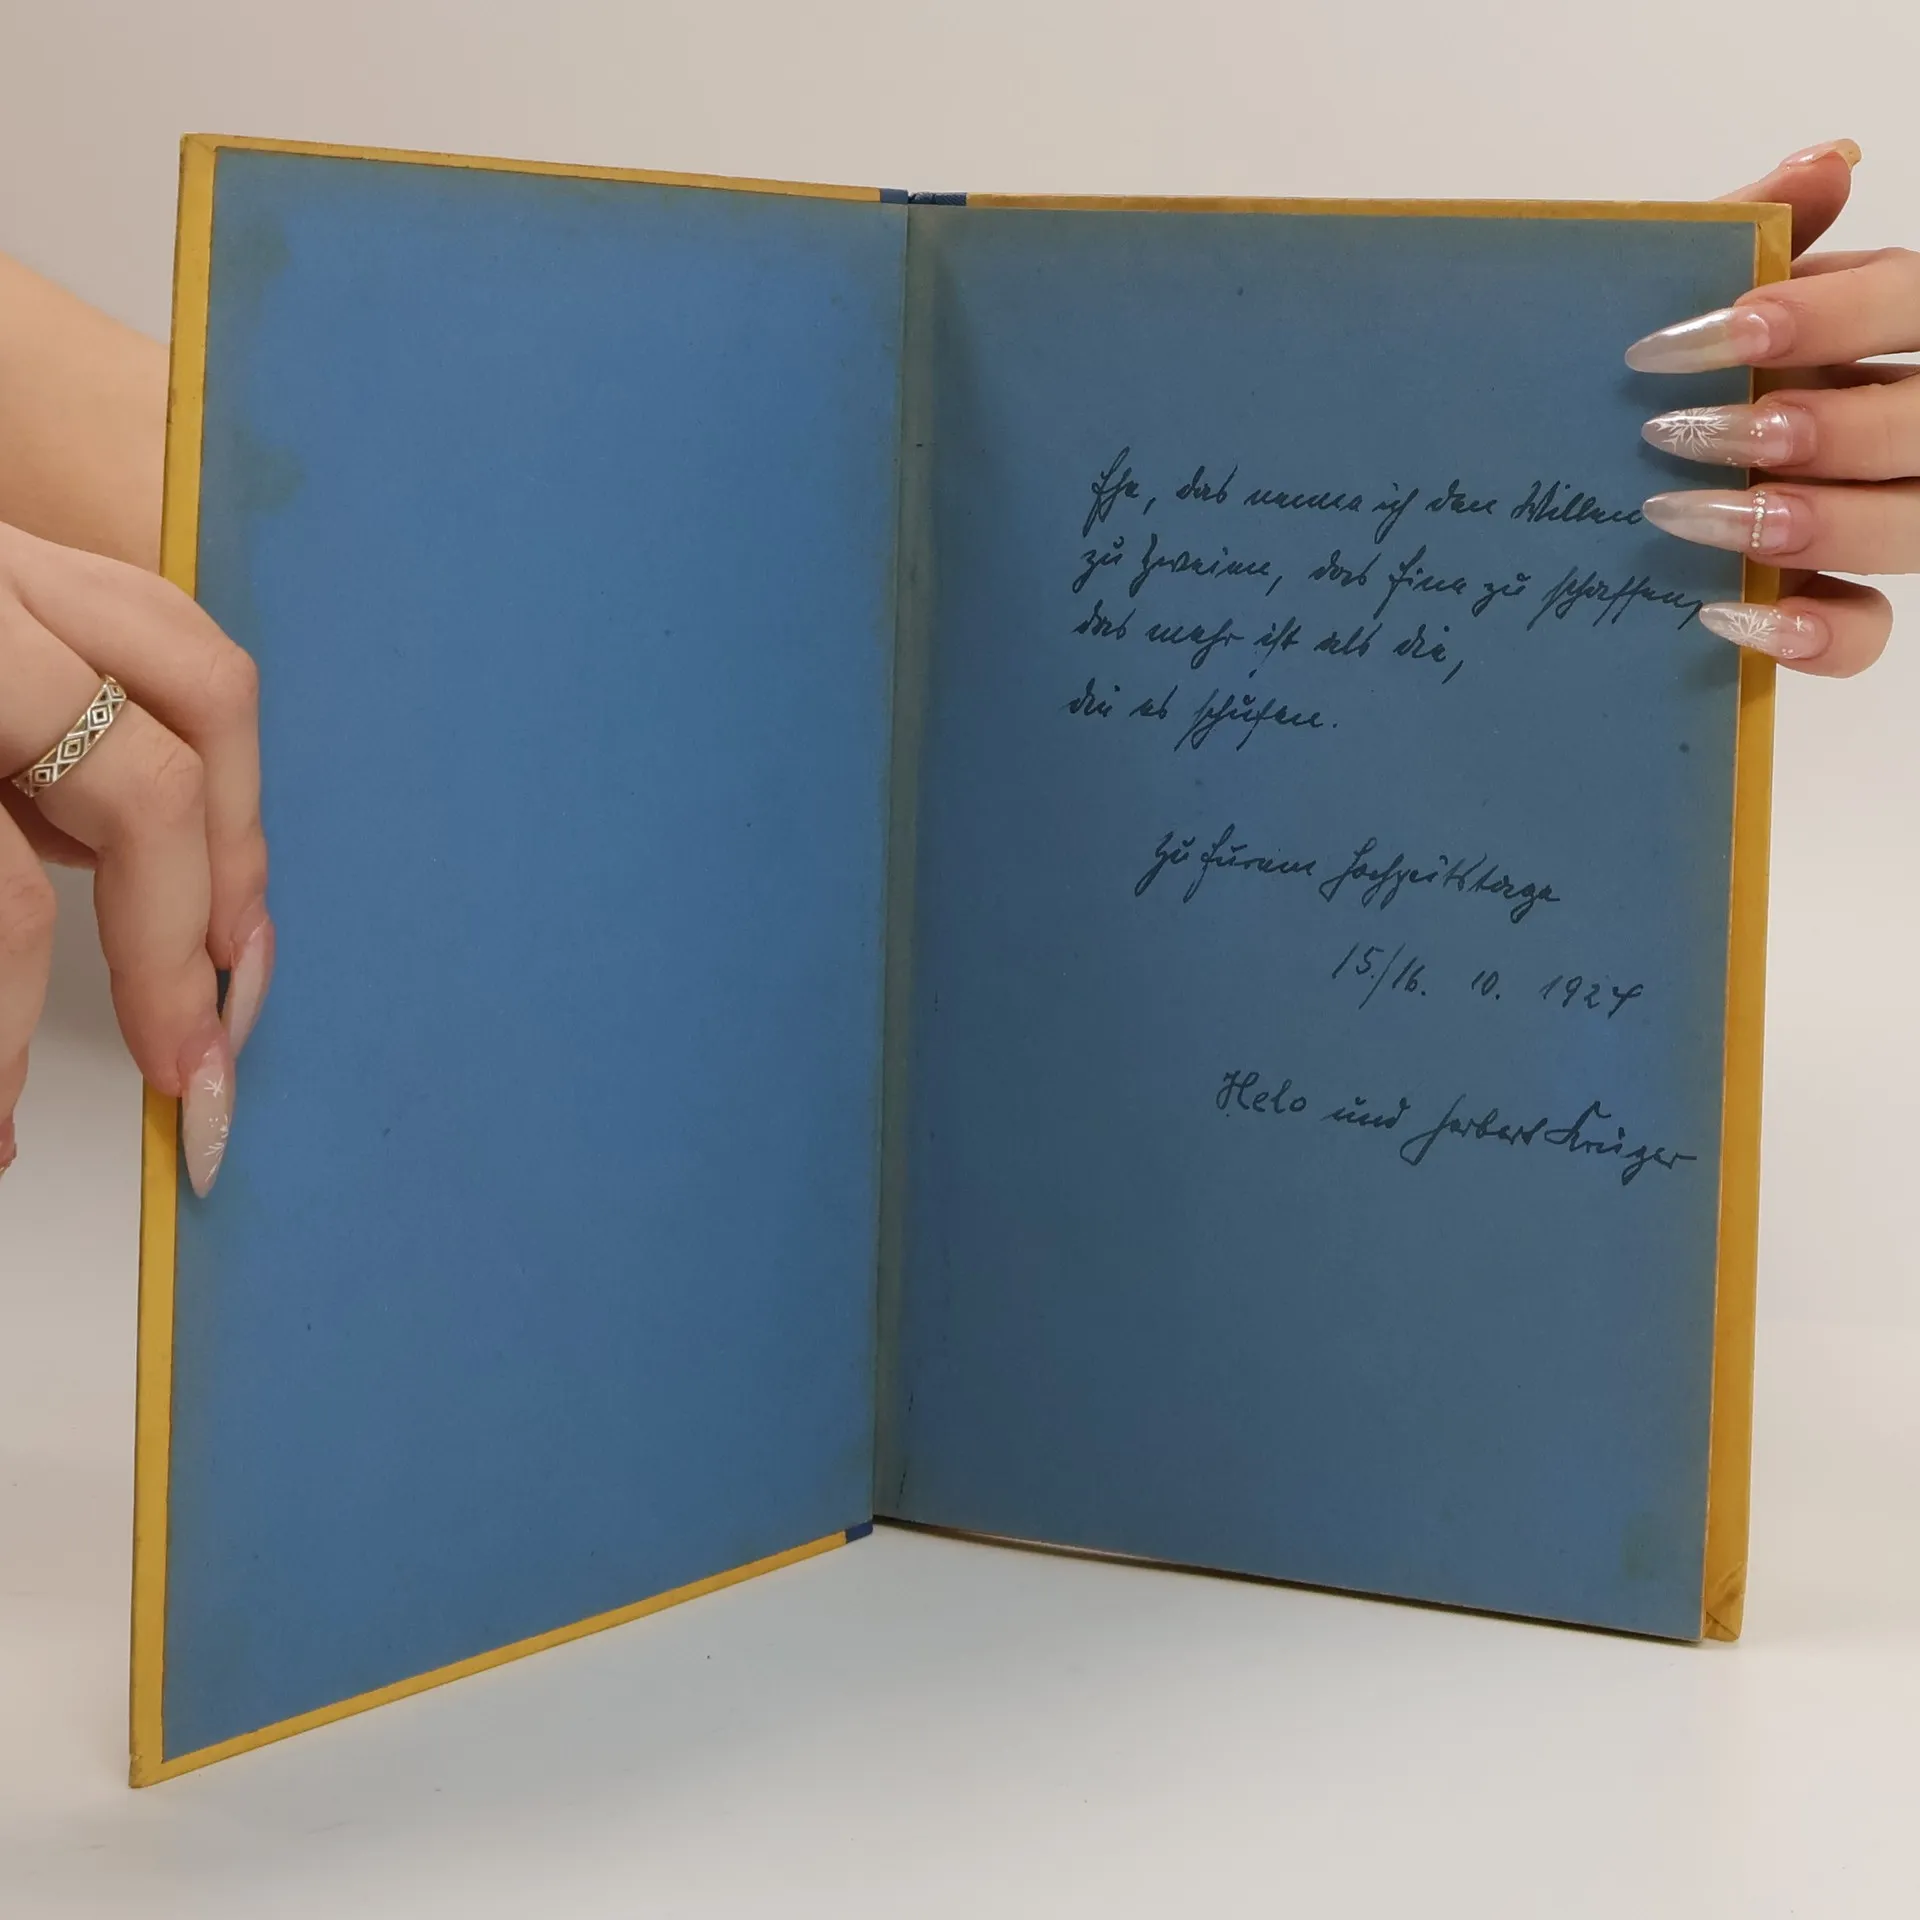 Ehe, das nenne ich den Willen
zu Zweien, das Eine zu schaffen,
das mehr ist als die,
die es schufen.
Zu Eurem Hochzeitstage
15./16. 10. 1927
Helo und Herbert Krüger